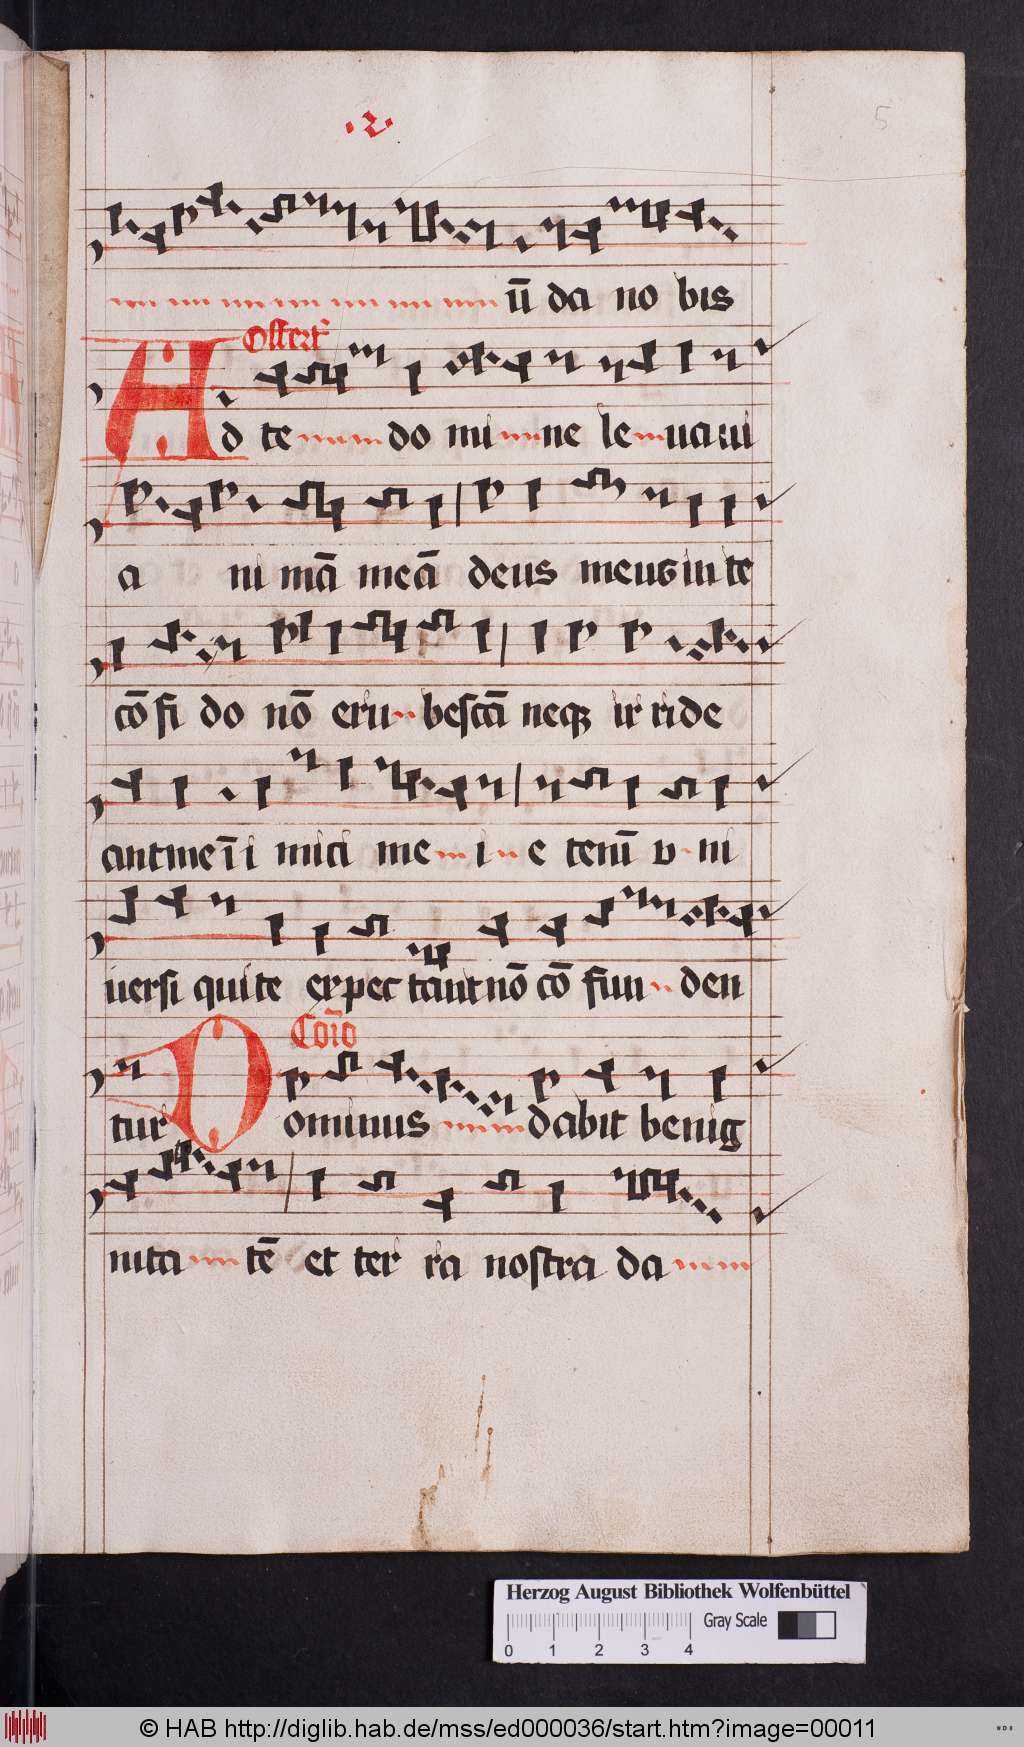 ·2·
5
ū da no bis
Offert
Ad te do mi ne le uaui
a ni mā meā deus meus in te
cō fi do nō eru bescā neqꝫ ir ride
ant me ī i mici me i e tenī v ni
uersi qui te expec tant nō cō fun den
Cōio
tur Dominus dabit benig
nita tē et ter ra nostra da
Herzog August Bibliothek Wolfenbüttel
0 1 2 3 4 Gray Scale
© HAB http://diglib.hab.de/mss/ed000036/start.htm?image=00011